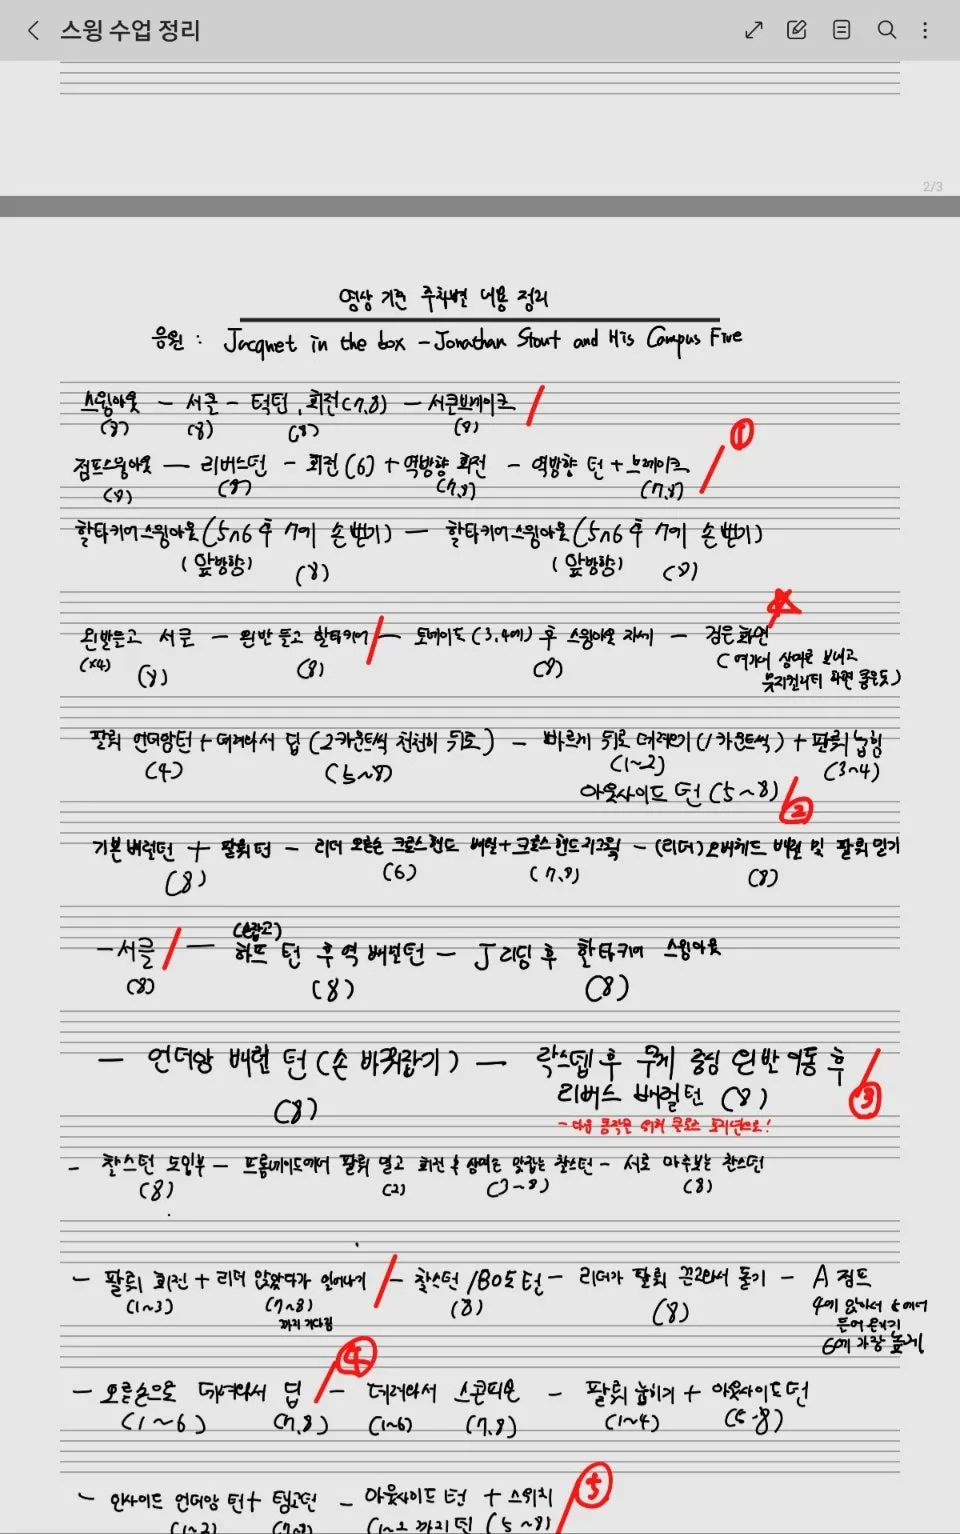 스윙 수업 정리
2/3
영상 기준 주차별 내용 정리
음원 : Jacquet in the box - Jonathan Stout and His Campus Five
스윙아웃 - 서클 - 턱턴, 회전(7,8) - 서큰브레이크
(8) (8) (8) (8)
①
점프스윙아웃 - 리버스턴 - 회전(6) + 역방향 회전 - 역방향 턴 + 브레이크
(8) (8) (7,8) (7,8)
할타키어스윙아웃(5n6 후 7에 손 받기) - 할타키어스윙아웃(5n6 후 7에 손 받기)
(앞방향) (8) (앞방향) (8)
왼발들고 서클 - 왼발 들고 할타키어 - 토네이도(3,4에) 후 스윙아웃 자세 - 검은화면
(x4) (8) (8) (8)
(여기서 상대로 보내고
뮤지컬리티 하면 좋은듯)
팔뤄 언더암턴 + 데려와서 딥(2카운트씩 천천히 뒤로) - 빠르게 뒤로 데려오기(1카운트씩) + 팔뤄 눕힘
(4) (5~8) (1~2) (3~4)
아웃사이드 턴(5~8)
②
기본배럴턴 + 팔뤄턴 - 리더 오른손 크로스핸드 배럴+크로스핸드 - (리더)오버헤드 배럴 및 팔뤄 밀기
(8) (6) (7,8) (8)
- 서클 - (손잡고) 하프 턴 후 역 배럴턴 - J리딩 후 할타키어 스윙아웃
(8) (8) (8)
- 언더암 배럴 턴(손 바꿔잡기) - 락스텝 후 무게 중심 왼발 이동 후
(8) 리버스 배럴턴 (8)
③
- 다음 동작은 위치 클로즈 포지션으로!
- 찰스턴 도입부 - 프롬나이드에서 팔뤄 열고 회전 후 상대는 맞잡는 찰스턴 - 서로 마주보는 찰스턴
(8) (2) (3~8) (8)
- 팔뤄 회전 + 리더 앉았다가 일어나기 - 찰스턴/180도 턴 - 리더가 팔뤄 끌고와서 돌기 - A 점프
(1~3) (7~8) (8) (8)
까지 기다림
4에 앉아서 5에서
들어 올리기
6에 가장 높게
④
- 오른손으로 데려와서 딥 - 데려와서 스콜피온 - 팔뤄 눕히기 + 아웃사이드 턴
(1~6) (7,8) (1~6) (7,8) (1~4) (5~8)
⑤
- 인사이드 언더암 턴 + 턴 - 아웃사이드 턴 + 스위치
(1~2) (7~8) (1~2 까지 턴 (5~8)